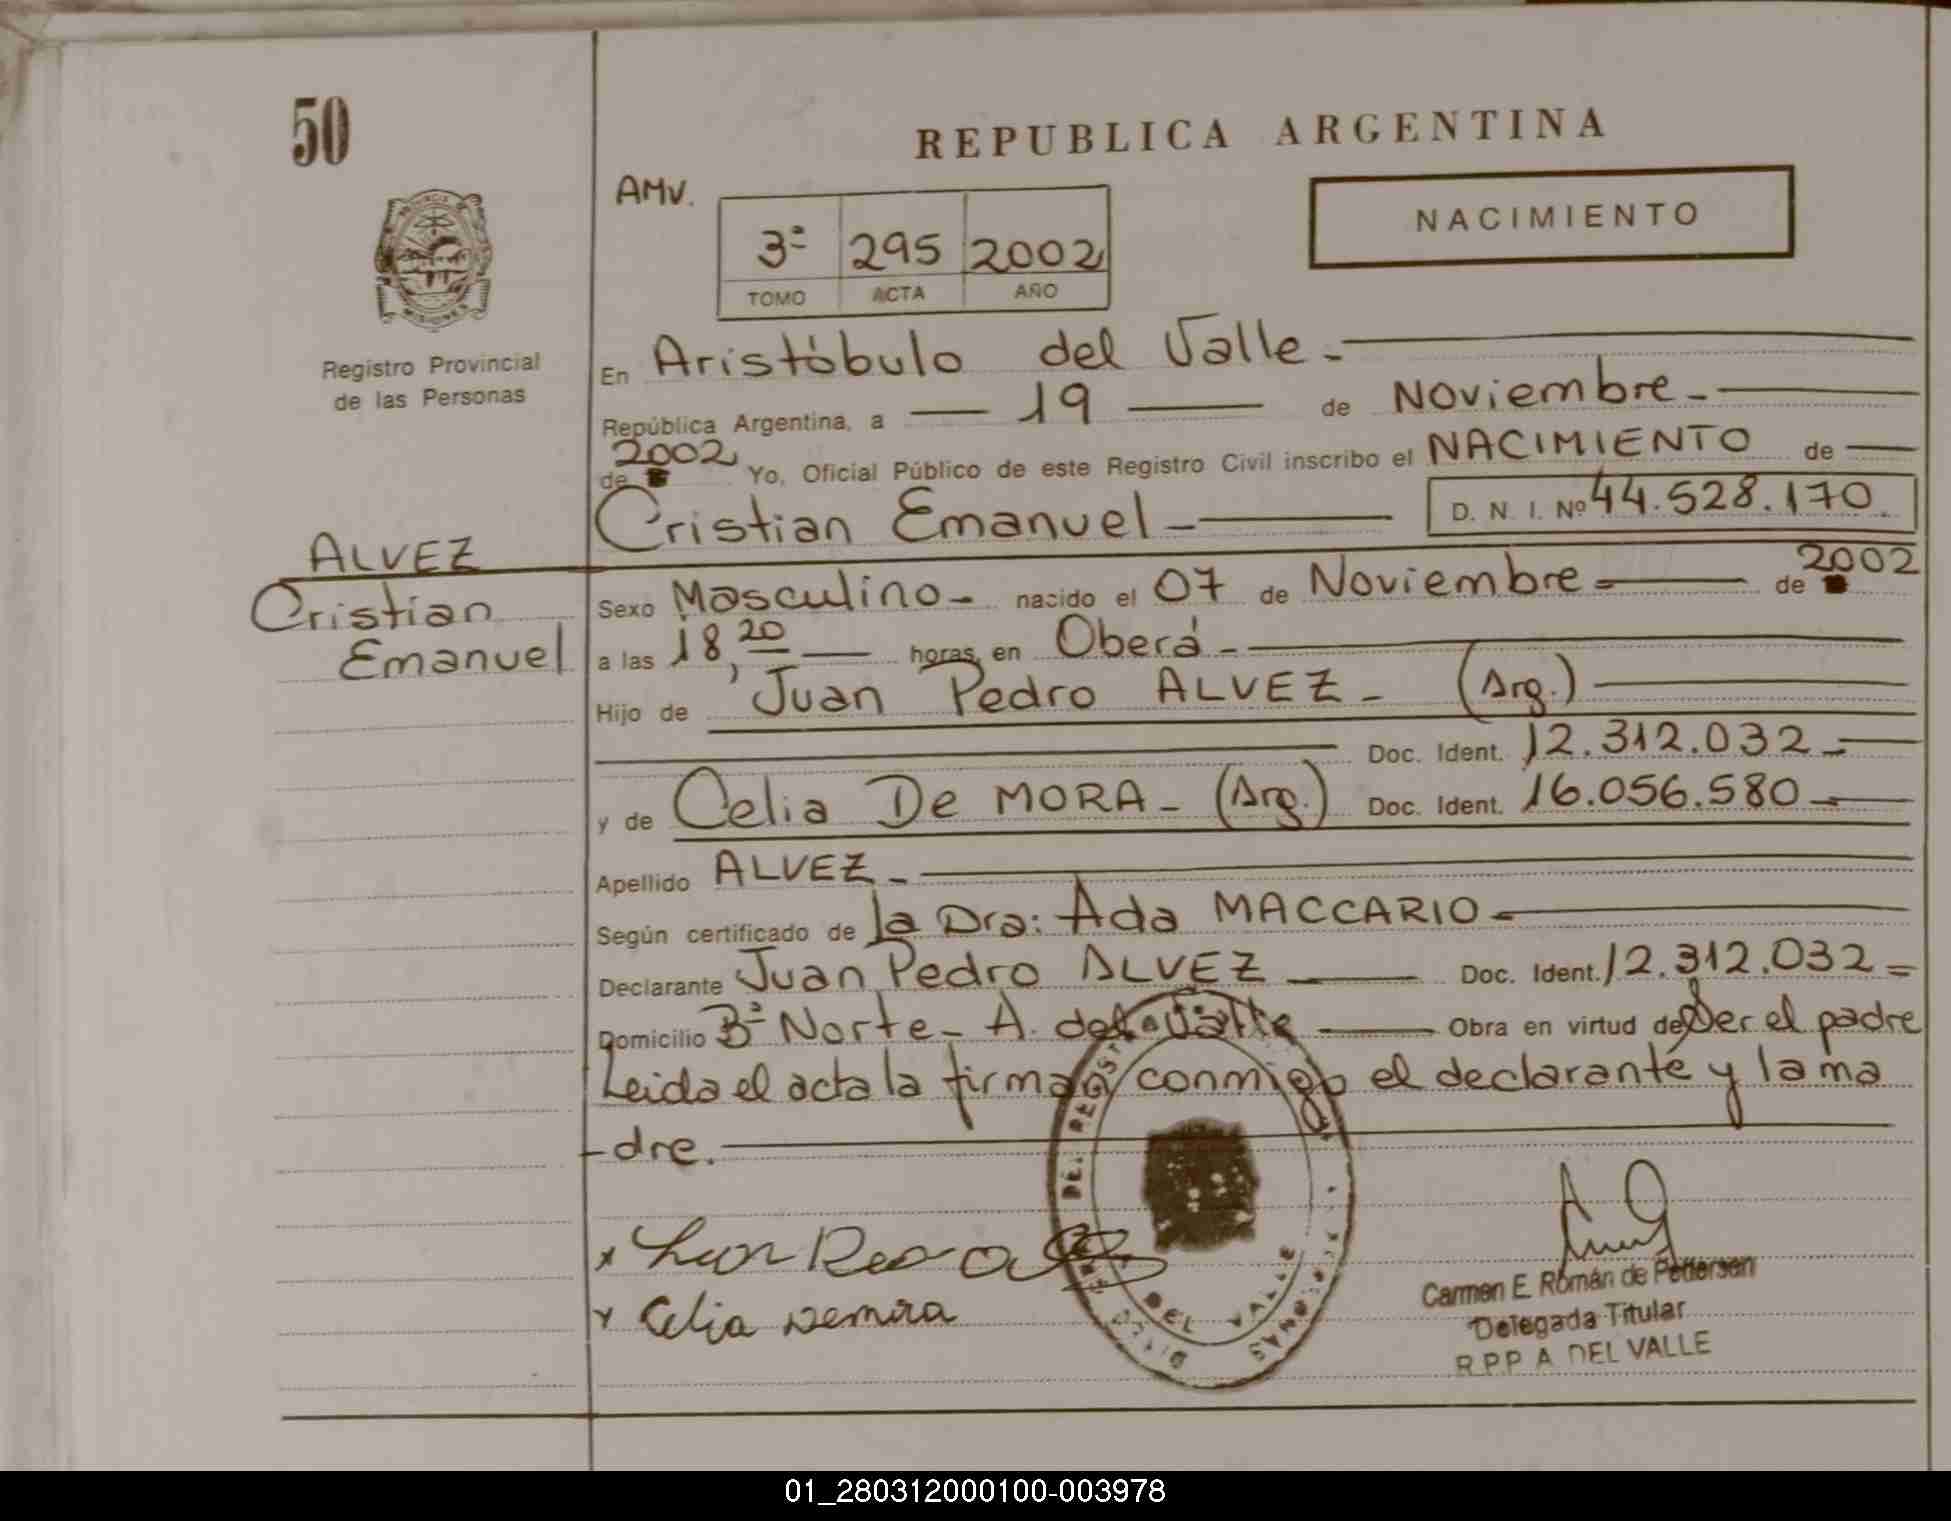 50
REPUBLICA ARGENTINA
AMV.
NACIMIENTO
3ª 295 2002
TOMO ACTA AÑO
PROVINCIA DE
MISIONES
Registro Provincial
de las Personas
En Aristóbulo del Valle.-
República Argentina, a 19 de Noviembre.-
de 2002 Yo, Oficial Público de este Registro Civil inscribo el NACIMIENTO de
Cristian Emanuel.- D. N. I. Nº 44.528.170.
ALVEZ
Cristian
Emanuel
Sexo Masculino.- nacido el 07 de Noviembre.- de 2002
a las 18,20 horas, en Oberá.-
Hijo de Juan Pedro ALVEZ.- (Arg.)
Doc. Ident. 12.312.032.-
y de Celia De MORA.- (Arg.) Doc. Ident. 16.056.580.-
Apellido ALVEZ.-
Según certificado de la Dra: Ada MACCARIO.-
Declarante Juan Pedro ALVEZ Doc. Ident. 12.312.032=
Domicilio Bº Norte- A. del Valle Obra en virtud de Ser el padre
Leida el acta la firman conmigo el declarante y la ma
-dre.
x Juan Pedro
x Celia Demora
DEL VALLE
Carmen E. Román de Pettersen
Delegada Titular
R.P.P A DEL VALLE
01_280312000100-003978